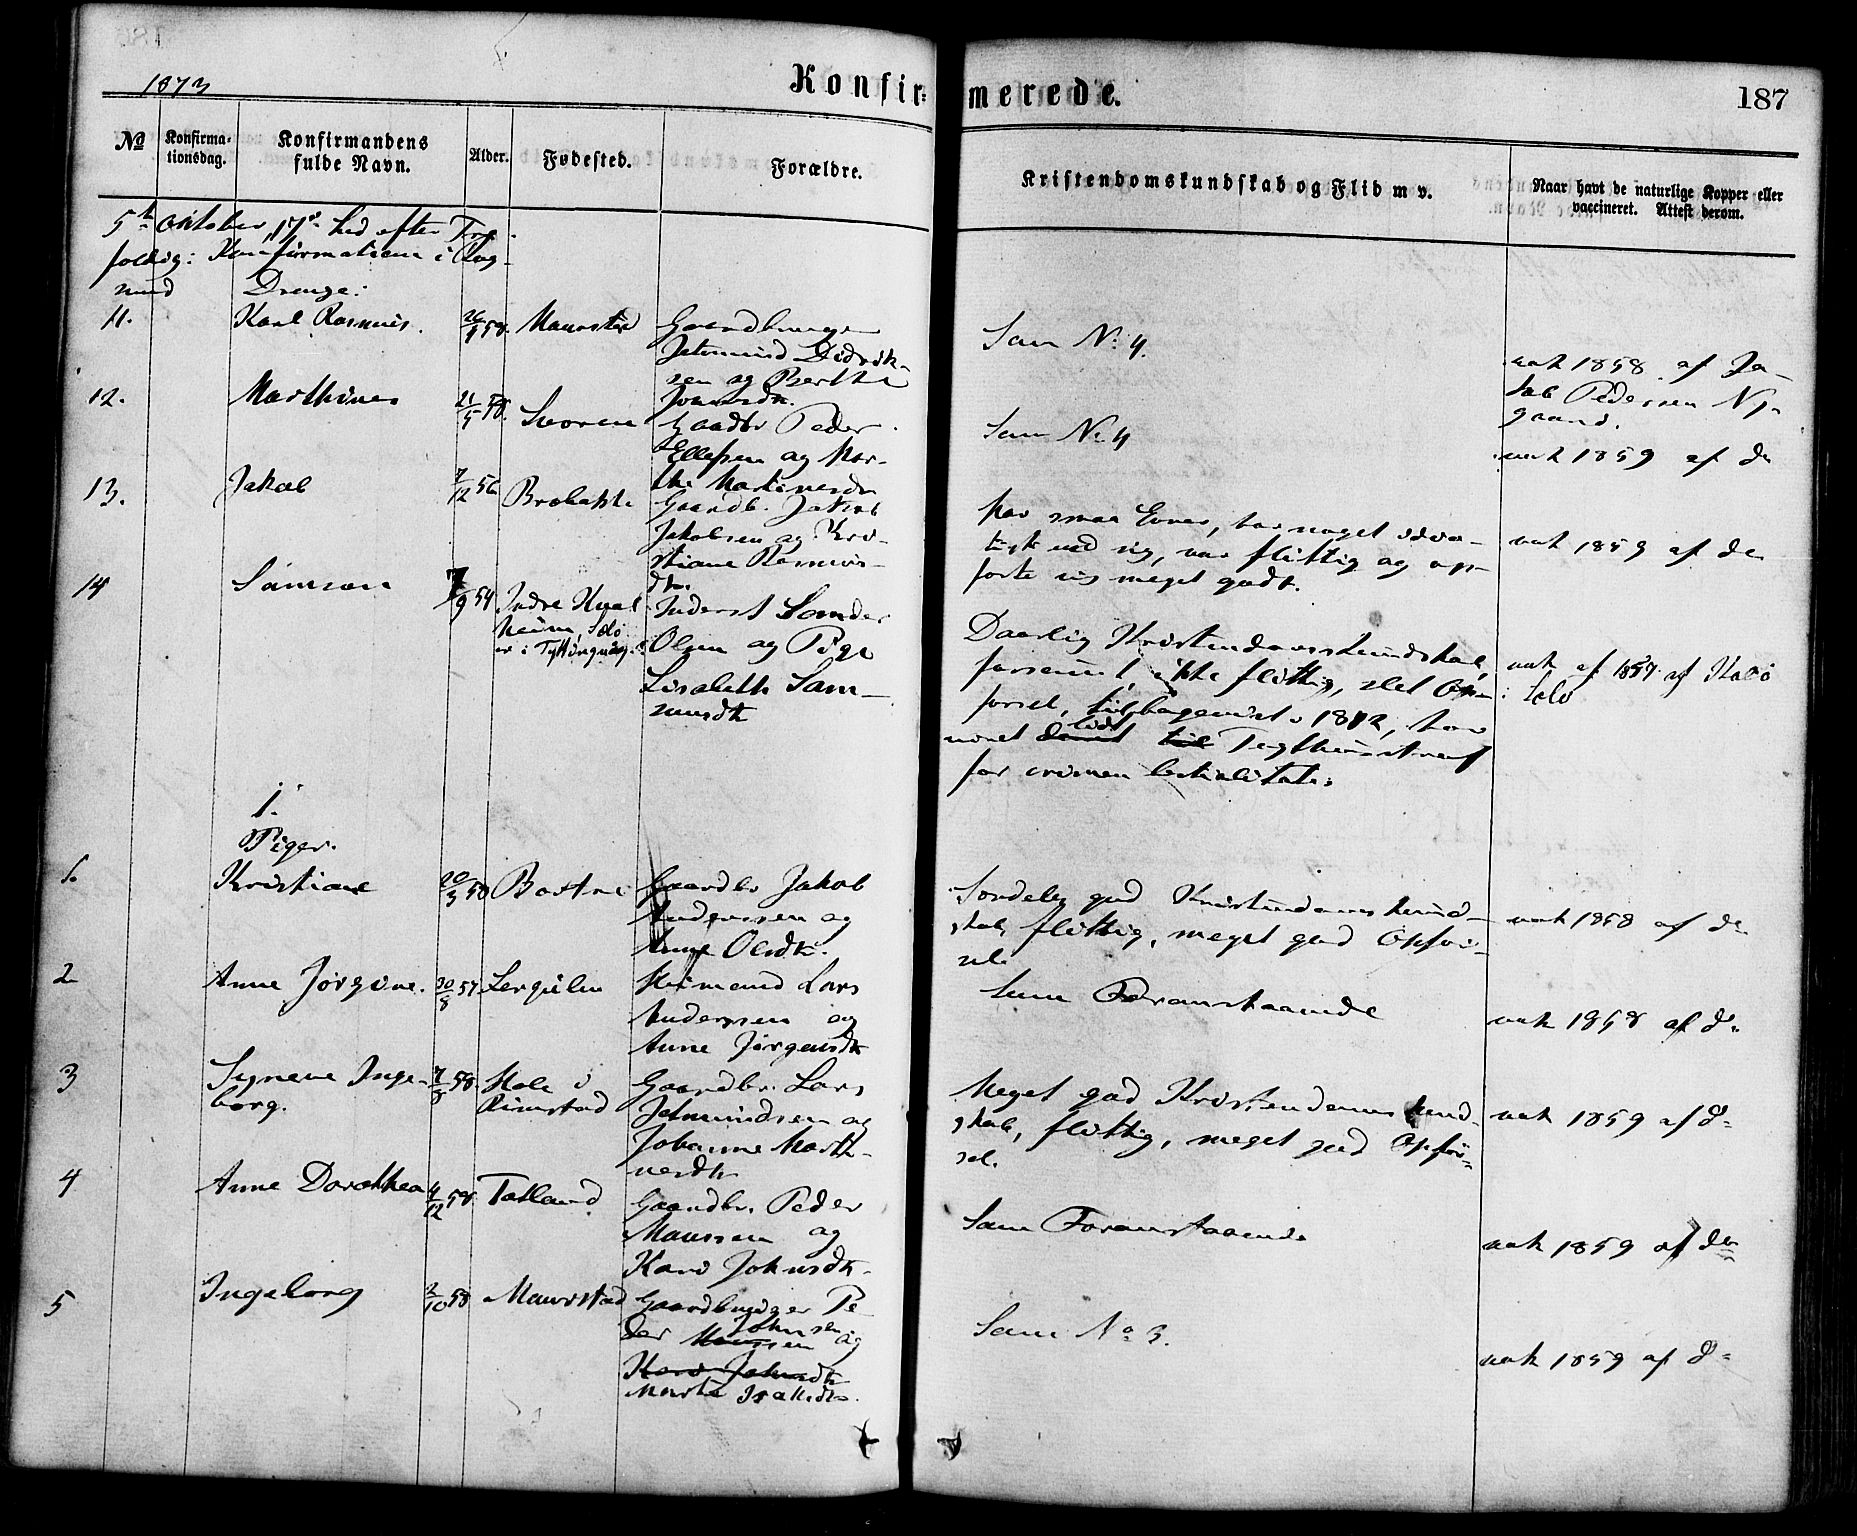 1873
Konfirmerede.
187
No
Konfirmationsdag.
Konfirmandens fulde Navn.
Alder.
Fødested.
Forældre.
Kristendomskundskab og Flid m v.
Naar havt de naturlige Kopper eller
vaccineret. Attest derom.
5te Oktober, 17de Sønd efter Tre-
foldig: Konfirmation i
Drenge:
11. Karl Rasmus. 26/4 58. Maurstad
Gaardbruger
Jetmund Didrik-
sen og Berthe
Som No 4.
vak 1858 af Ja-
kob Pedersen Ny-
gaard.
12. Marthines 21/5 58.
Gaardbr Peder
Ellefsen og Mar-
the Martinesdr
Som No 4
vak 1859 af do
13. Jakob 7/12 56
Gaardb. Jakob
Jakobsen og Kri-
stiane Rasmus-
dtr.
har smaa Evner, har noget
ved sig, var flittig og op-
førte sig meget godt.
vak 1859 af do
14 Samson 7/9 54 Indre
Selø
er i
Inderst Sander
Olsen og Pige
Lisabeth Sam-
sonsdtr
Daarlig Kristendomskundskab
forsømt, ikke flittig, slet Op-
førsel, tilbagevist i 1872, har
været lidt Tugthusstraf
for crimen bestialitatis
vak af 1857 af
i Selø
1.
Piger.
1. Kristiane 20/3 58
Gaardbr Jakob
Andersen og
Anne Olsdtr.
Særdeles god Kristendomskund-
skab, flittig, meget god Opfør-
sel
vak 1858 af do
2 Anne Jørgine. 30/8 57
Husmand Lars
Andersen og
Anne Jørgensdtr
Som Foranstaaende
vak 1858 af do
3 Synneve Inge-
borg. 58. Hole i
Rimstad
Gaardbr. Lars
Jetmundsen og
Johanne Marti-
nesdtr
Meget god Kristendomskund-
skab, flittig, meget god Opfør-
sel.
vak 1859 af do
4 Anne Dorothea 4/12 58 Totland
Gaardbr. Peder
Maurseen og
Kari Johnsdtr.
Som Foranstaaende
vak 1859 af do
5 Ingeborg 2/10 58 Maurstad
Gaardbruger Pe-
der Johnsen og
Kari Johnsdtr
Marta
Som No 3.
vak 1859 af do